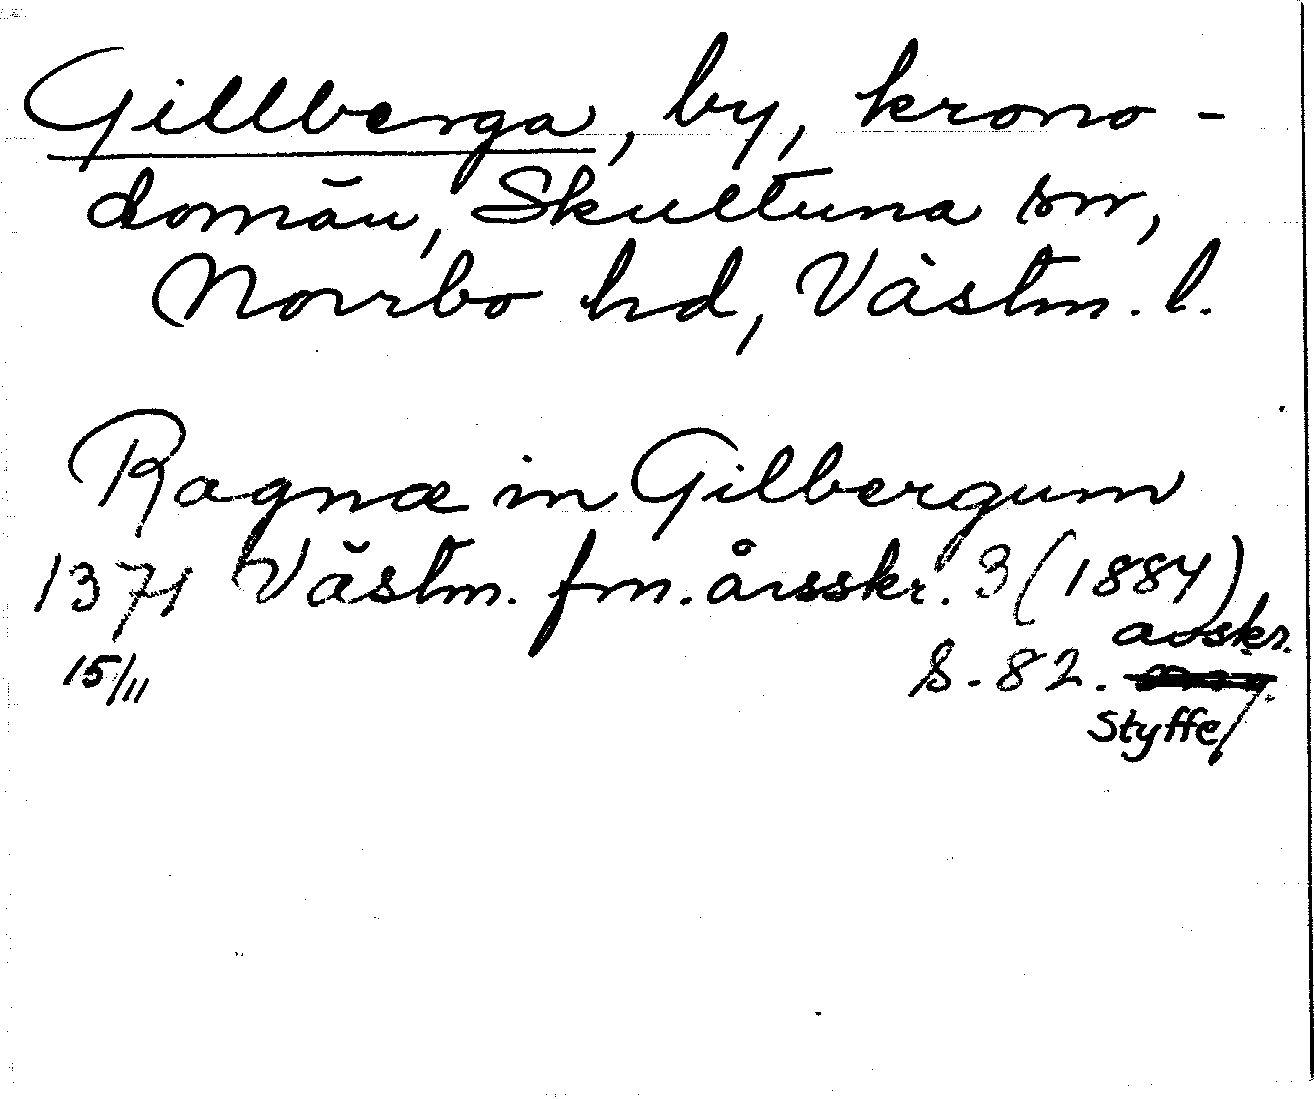 Gillberga, by, krono-
domän, Skultuna sn,
Norrbo hd, Västm. l.
Ragnæ in Gilbergum
1371 Västm. fm. årsskr. 3 (1884)
15/11 s. 82. avskr.
Styffe